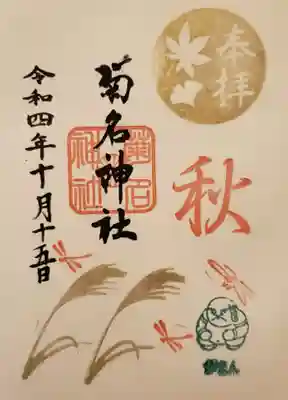 奉拝
秋
菊名神社
菊名
神社
令和四年十月十五日
がまんさん